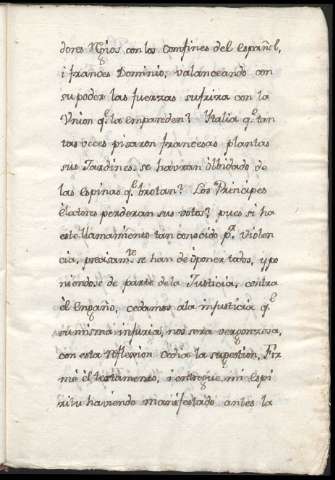 dores Rçios con los Confines del español,
i frances Dominio, valanceando con
su poder las fuerzas sufrira con la
Vnion qͤ la emparedan? Ytalia qͤ tan
tas veces pisaron francesas plantas
sus Jardines, se havran olbidado de
las espinas qͤ brotan? Los Principes
Electores perderan sus votos? pues si ha
este llamamiento tan conocido pʳ violen
cia, precisamᵗᵉ se han de oponer todos, y po
niendose de parte de la Justicia, contra
el engaño, cedamos a la injusticia qͤ
su misma injuria, nos sera vergonzosa,
con esta reflexion la sugestion, Fir
mè el testamento, i entregue mi espi
ritu haviendo manifestado antes la